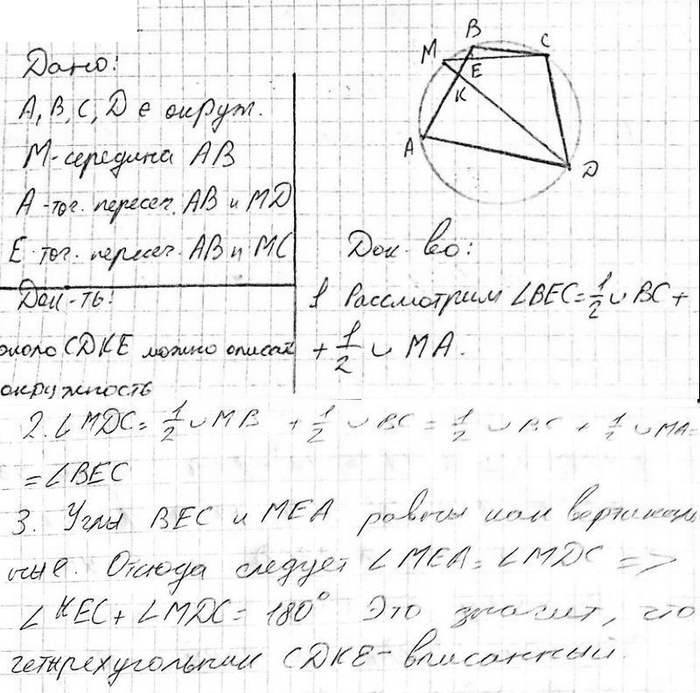 Дано:
A, B, C, D є окруж.
M-середина AB
A-точ. пересеч. AB и MD
E точ. пересеч. AB и MC
Док-ть:
около CDKE можно описать
окружность
B
C
M
E
K
A
D
Док-во:
1 Рассмотрим ∠BEC=1/2 ∪ BC +
+ 1/2 ∪ MA.
2. ∠MDC= 1/2 ∪ MB + 1/2 ∪ BC = 1/2 ∪ BC + 1/2 ∪ MA=
=∠BEC
3. Углы BEC и MEA равны как вертикаль
ные. Отсюда следует ∠MEA=∠MDC =>
∠KEC+∠MDC=180° Это значит, что
четырехугольник CDKE-вписанный.